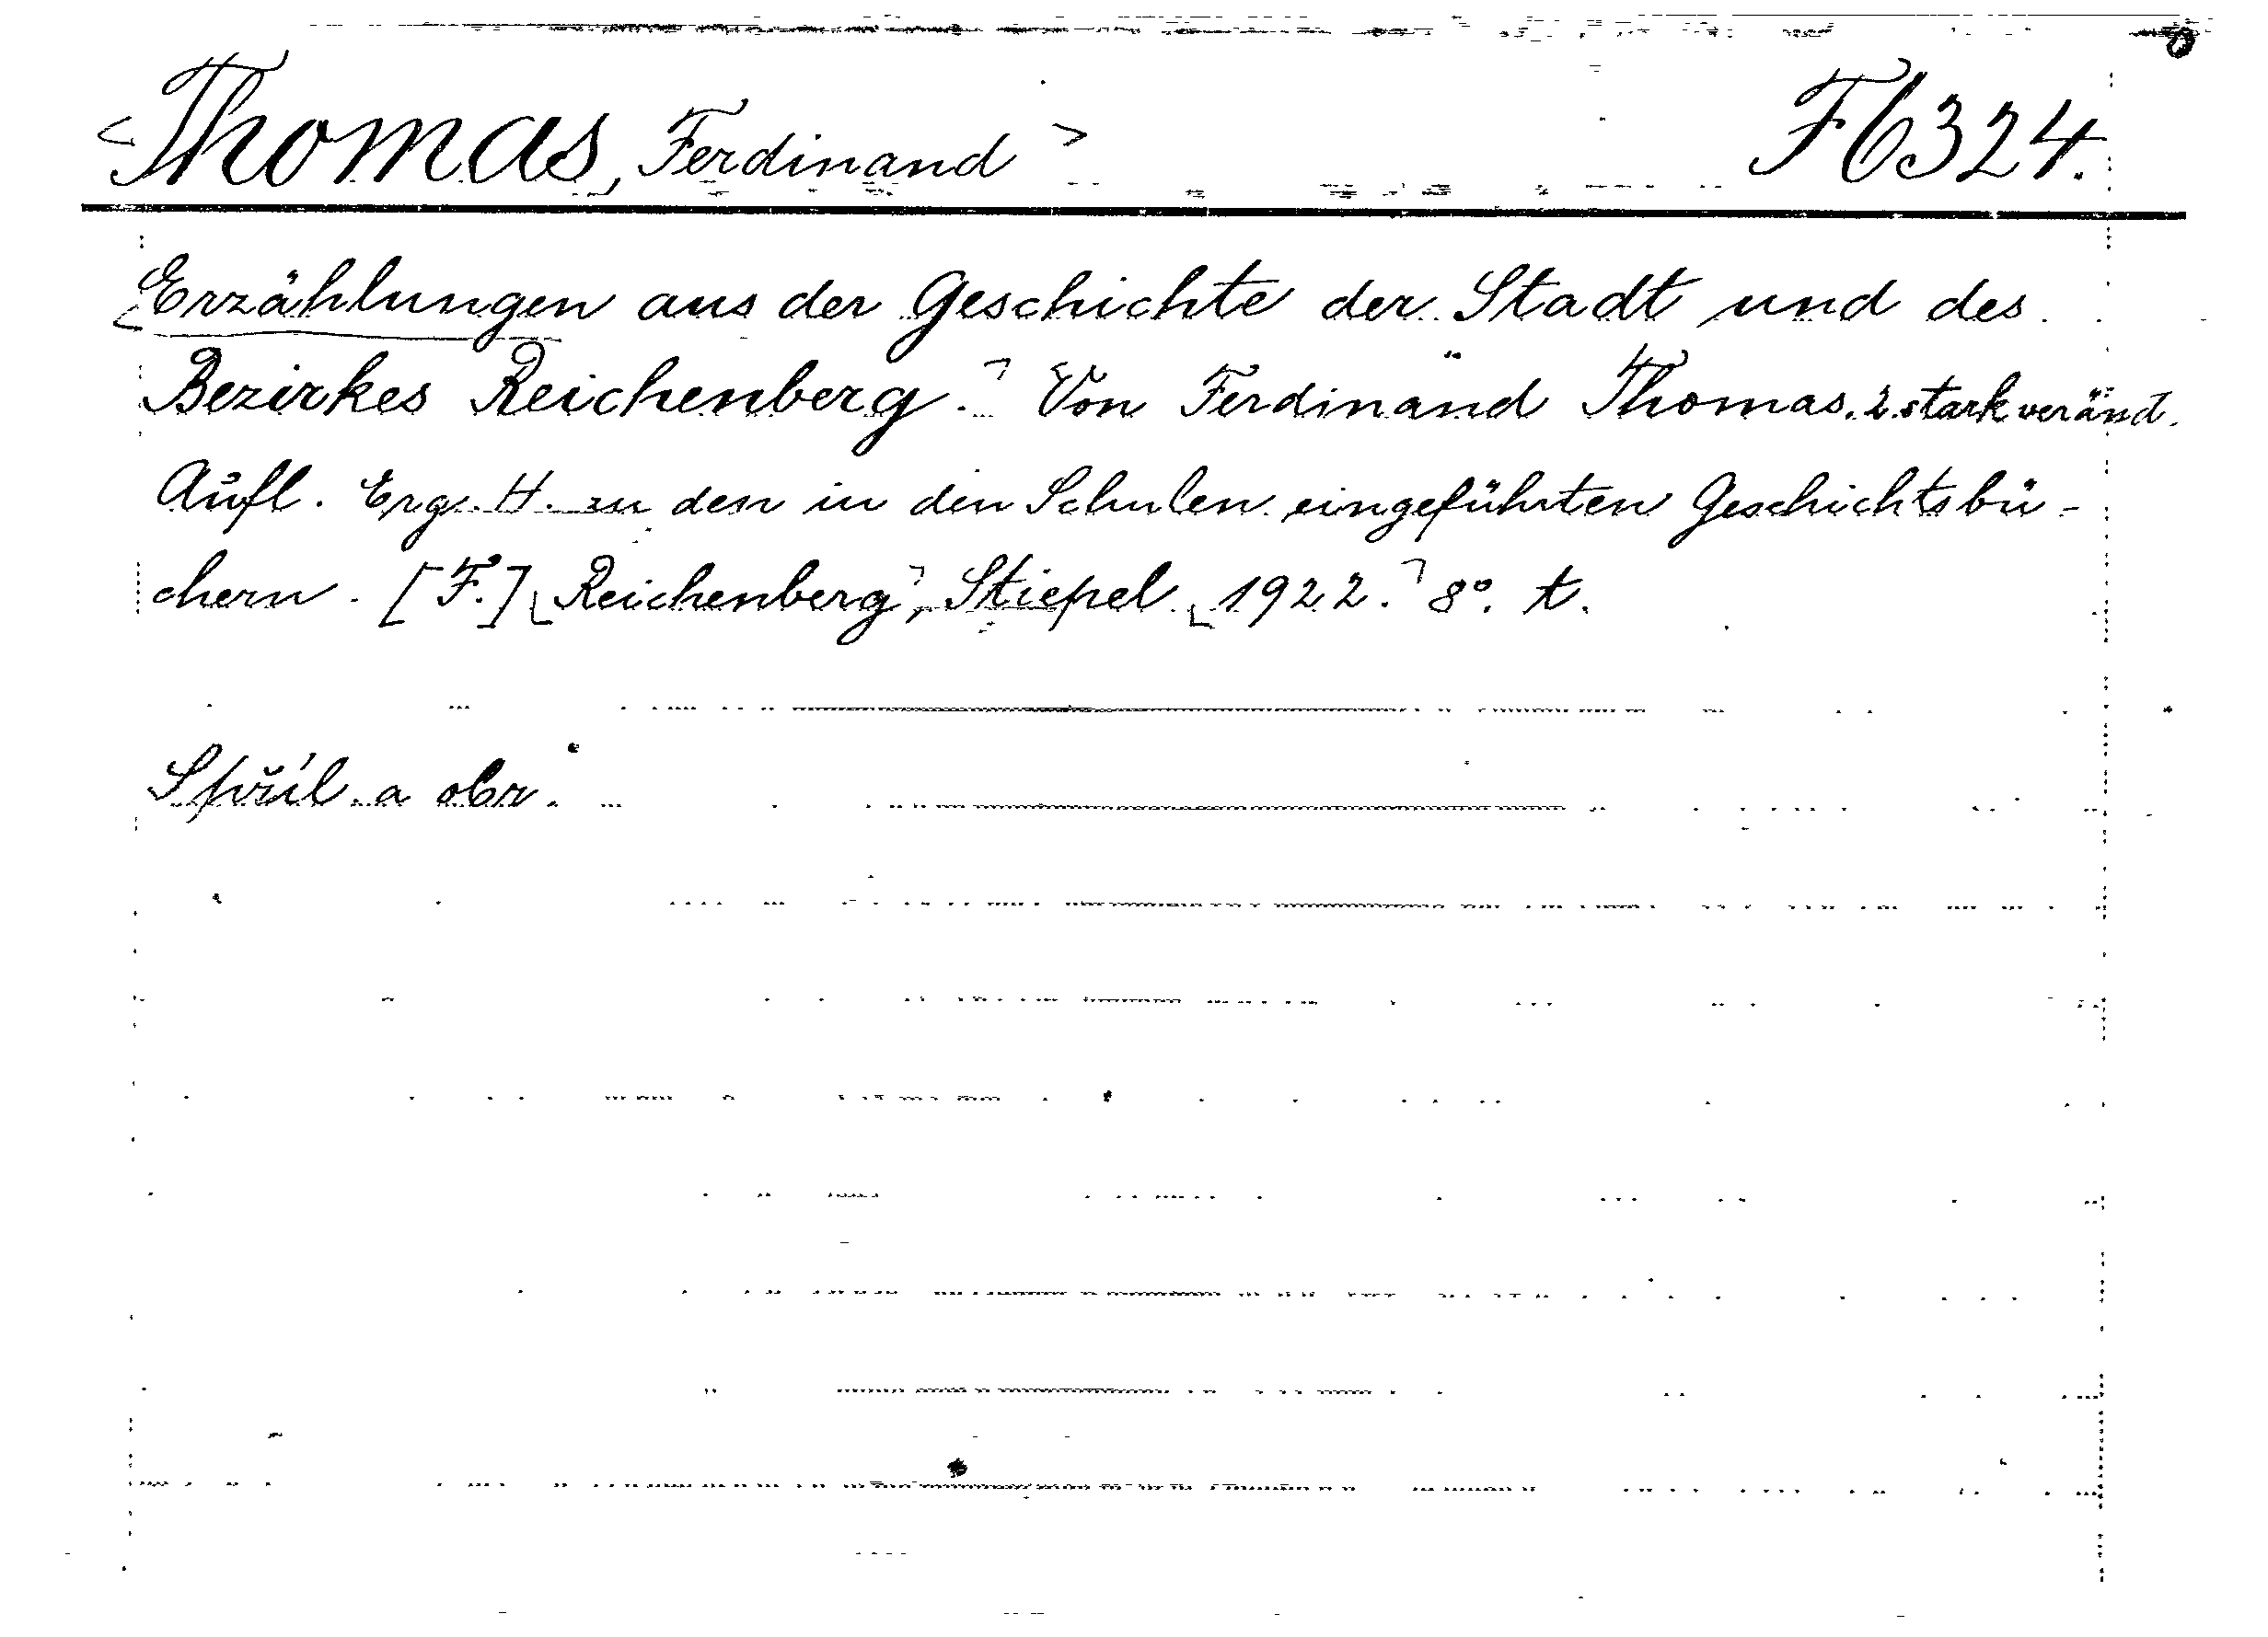 <Thomas, Ferdinand> F6324.
Erzählungen aus der Geschichte der Stadt und des
Bezirkes Reichenberg. Von Ferdinand Thomas. 2. stark veränd.
Aufl. Erg. H. zu den in den Schulen eingeführten Geschichtsbü-
chern. [F.] Reichenberg, Stiepel 1922. 8°. t.
S příl. a obr.